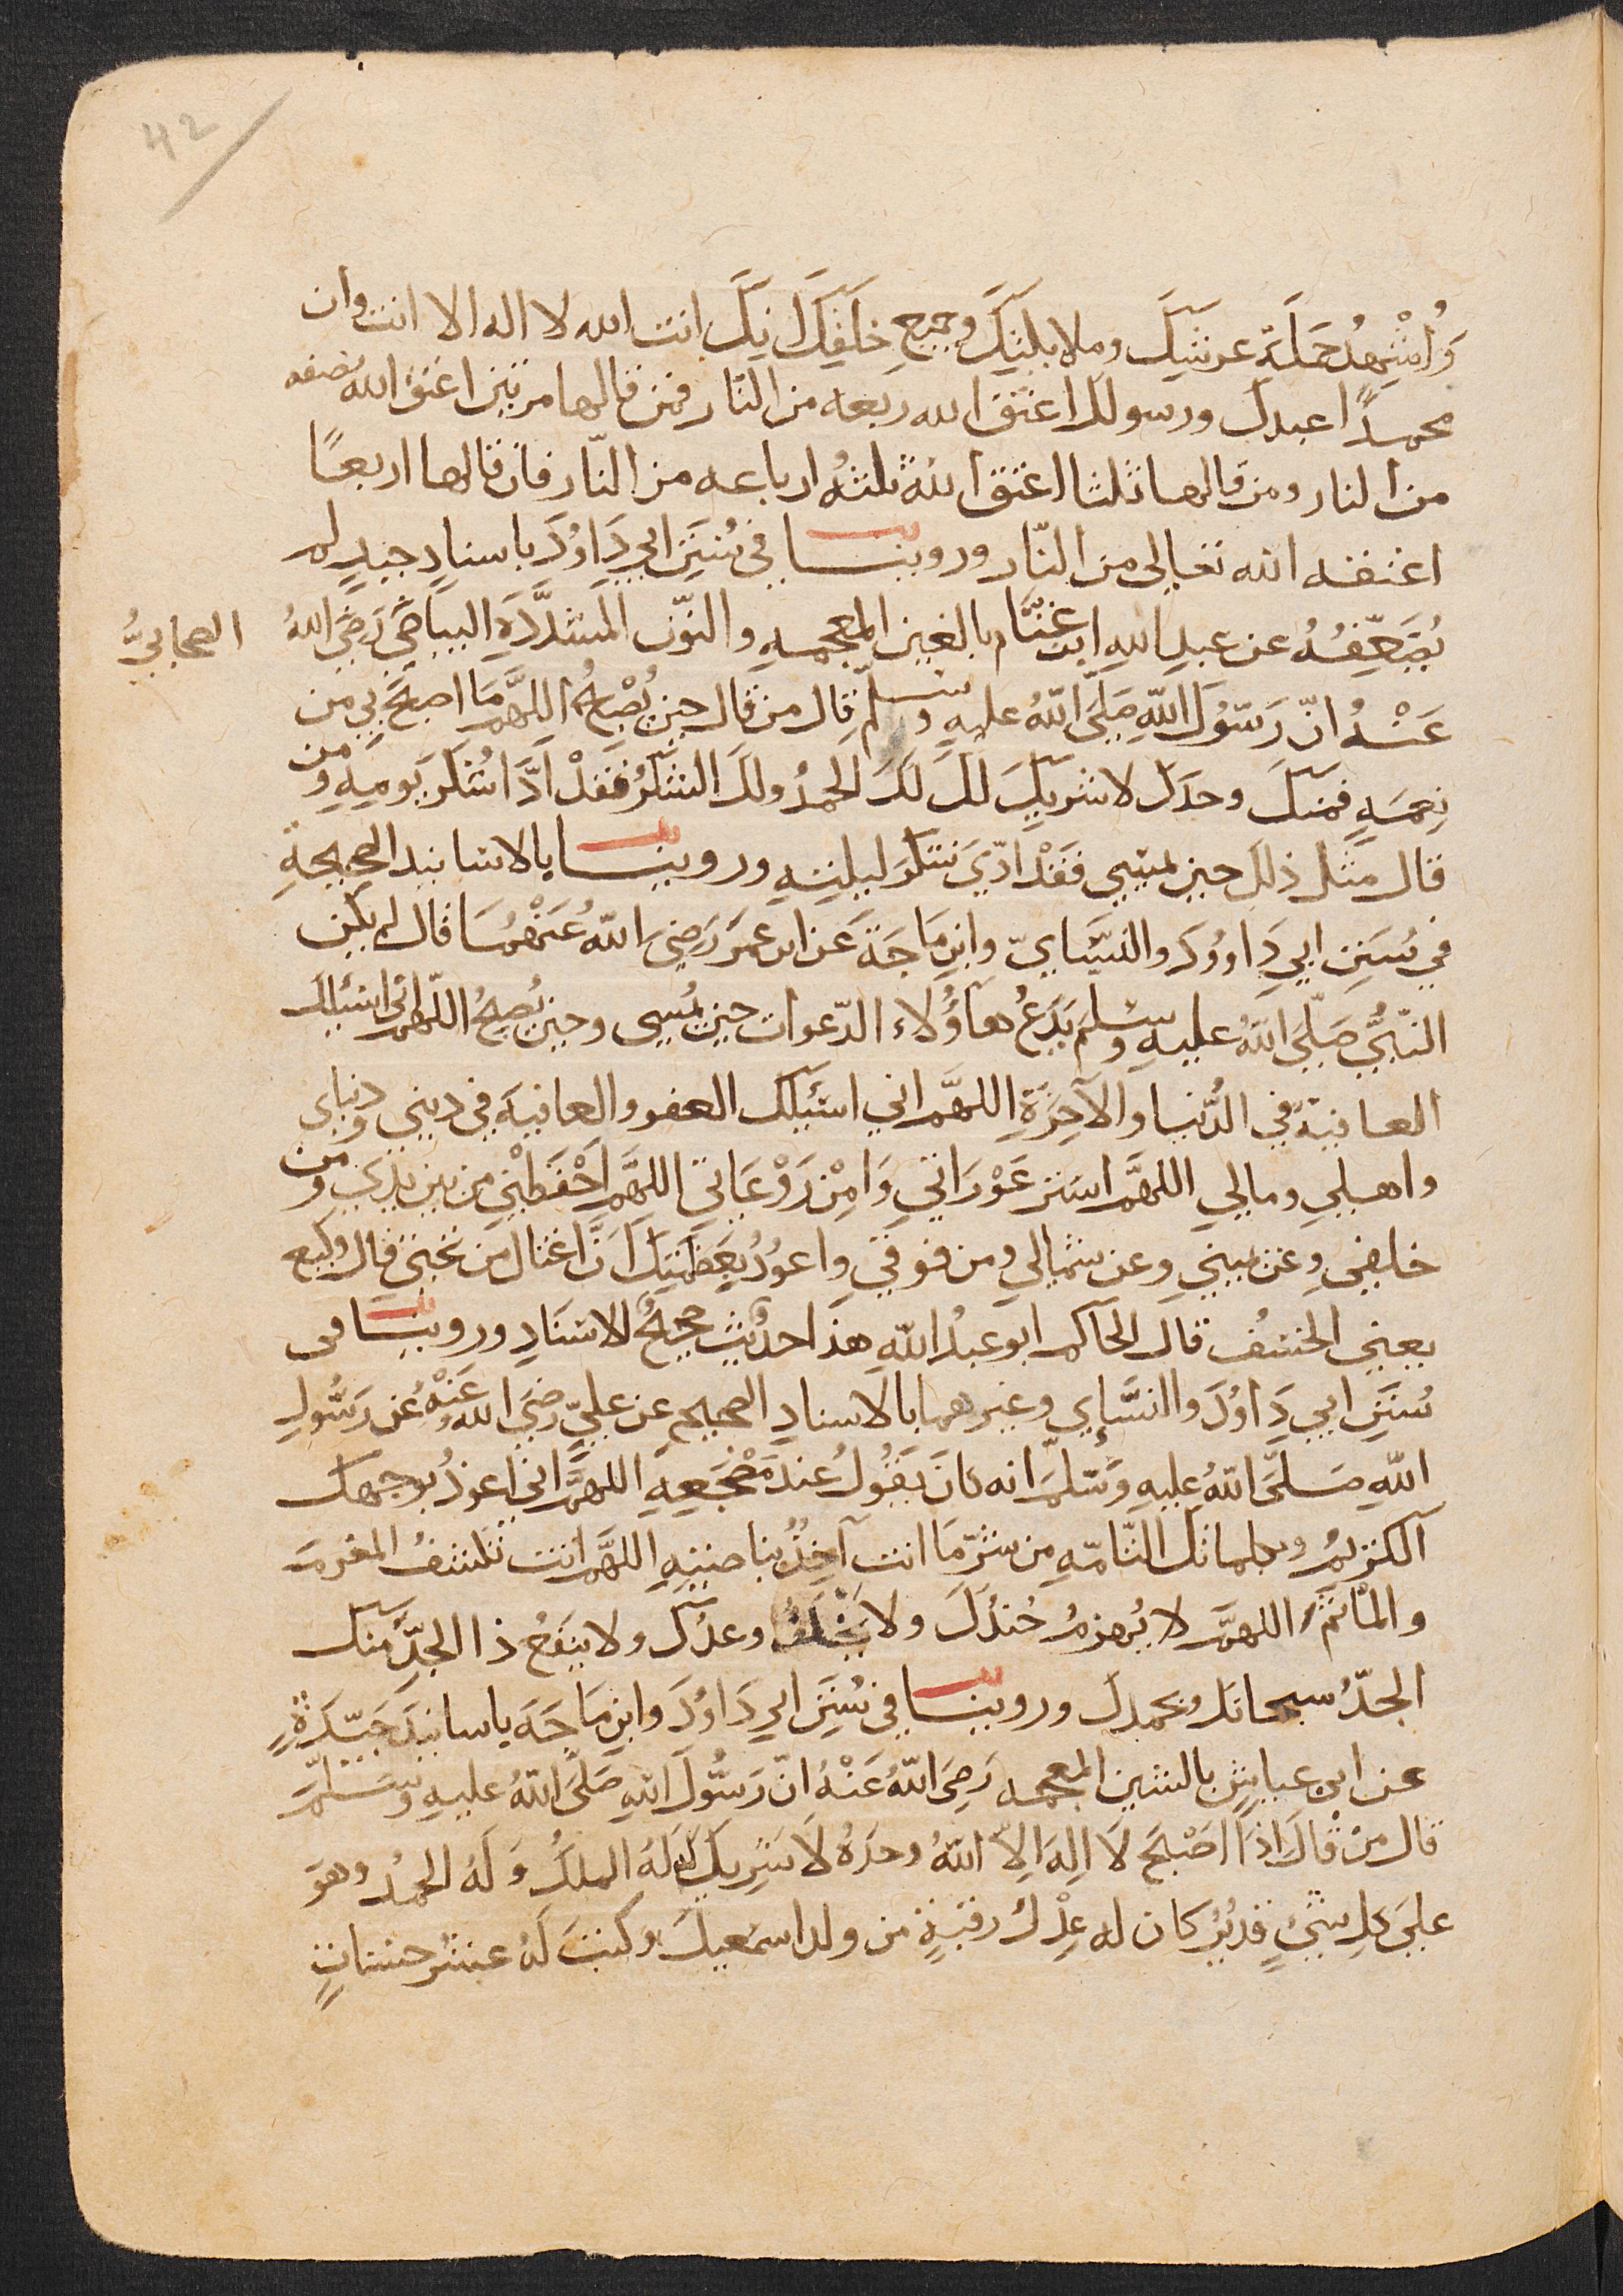 42
وَأُشْهِدُ حَمَلَةَ عرشِكَ وملايكتِكَ وجميعِ خلقِكَ انك انت الله لا اله الا انت وان
محمدًا عبدك ورسولك اعتق الله ربعه من النّار فمن قالها مرتين اعتق الله نصفه
من النار ومن قالها ثلثا اعتق اللهُ ثلثهُ ارباعه من النّار فان قالها اربعًا
اعتقه الله تعالى من النّار وروينا في سُنَنِ ابي دَاوُدَ باسنادٍ جيدٍ لم
يُضَعِّفْهُ عن عبدِ اللهِ ابن غنَّام بالغين المعجمهِ والنّون المشدَّدَةِ البياضيّ رَضيَ اللهُ
الصحابيُّ
عَنْهُ انّ رَسُولَ اللهِ صَلَّى اللهُ عليهِ وسلّم قال من قال حين يُصْبحُ اللهُمَّ مَا اصبحَ بي من
نِعْمَهٍ فمنك وحدَك لا شريكَ لكَ لَكَ الحمدُ ولك الشكرُ فقدْ ادَّا شُكرَ يَومِهِ ومن
قال مثلَ ذلك حين يمسِي فقدْ ادّيَ شكرَ ليلتِهِ وروينا بالاسانيد الصحيحةِ
في سُنَنِ ابي دَاووُدَ والنسَّايّ وابنِ مَاجَةَ عَن ابن عمرَ رَضيَ اللهُ عَنْهُمَا قال لم يكن
النّبيُّ صَلّىَ اللهُ عليهِ وسلم يَدَعُ هآؤُلاء الدّعوات حين يُمسِي وحين يُصبحُ اللّهمَّ اني اسئلك
العافيةَ في الدُّنيا والآخِرَةِ اللهمَّ اني اسئلك العفو والعافيةَ في ديني ودنياى
واهلي ومالي اللهمَّ استر عَوْرَاتي وَامِنْ رَوْعَاتي اللهمَّ احْفَظْني من بين يدَي ومن
خلفي وعن يميني وعن شمالي ومن فوقي واعوذُ بِعَظمتِكَ انْ اغتال من تحتي قال وكيع
يعني الخسْف قال الحاكم ابو عبدُ اللهِ هذا حديث صحيحُ الاسنَادِ وروينا في
سُنَنِ ابي دَاوُدَ والنسَّاي وغيرهما بالاسنادِ الصحيح عن عليّ رضيَ الله عَنْهُ عن رَسُولِ
اللهِ صَلَّى اللهُ عليهِ وَسَلَّمَ انه كانَ يَقُولُ عندَ مَضْجَعِهِ اللهمَّ اني اعوذُ بوجهك
الكريمُ وبكلماتك التّامّهِ من شرّ مَا انت آخِذٌ بناصيتِهِ اللهمَّ انت تكشفُ المغرمَ
والمأثم اللهمَّ لا يُهزمُ جُندُكَ ولا يُخْلَفُ وعدُكَ ولا ينفعُ ذا الجدِّ منك
الجدُّ سبحانك وبحمدك وروينا في سُنَنَ ابي دَاوُدَ وابنِ مَاجَةَ باسانيدَ جَيّدَةٍ
عن ابي عياشٍ بالشين المعجمه رَضِيَ اللهُ عَنْهُ انّ رَسُولَ اللهِ صَلَّىَ اللهُ عليهِ وسَلّمَ
قال منْ قالَ اذَا اصْبَحَ لَا اِلهَ اِلاّ اللهُ وحدَهُ لَا شَرِيكَ لَهُ لَهُ الملكُ وَلَهُ الحمدُ وهوَ
علىَ كلِ شئٍ قديرٌ كان له عِدْلَ رقبةٍ من ولد اسمعيلَ وكتبَ لَهُ عشرُ حسناتٍ